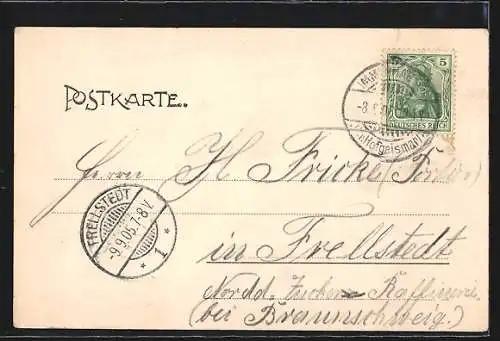 5
DEUTSCHES REICH
IMM
-8.9.05
(Hofgeismar)
POSTKARTE.
Herrn H Fricke
in Frellstedt
Nordd. Zucker Raffinerie
(bei Braunschweig.)
FRELLSTEDT
-9.9.05.7-8V.
* 1 *